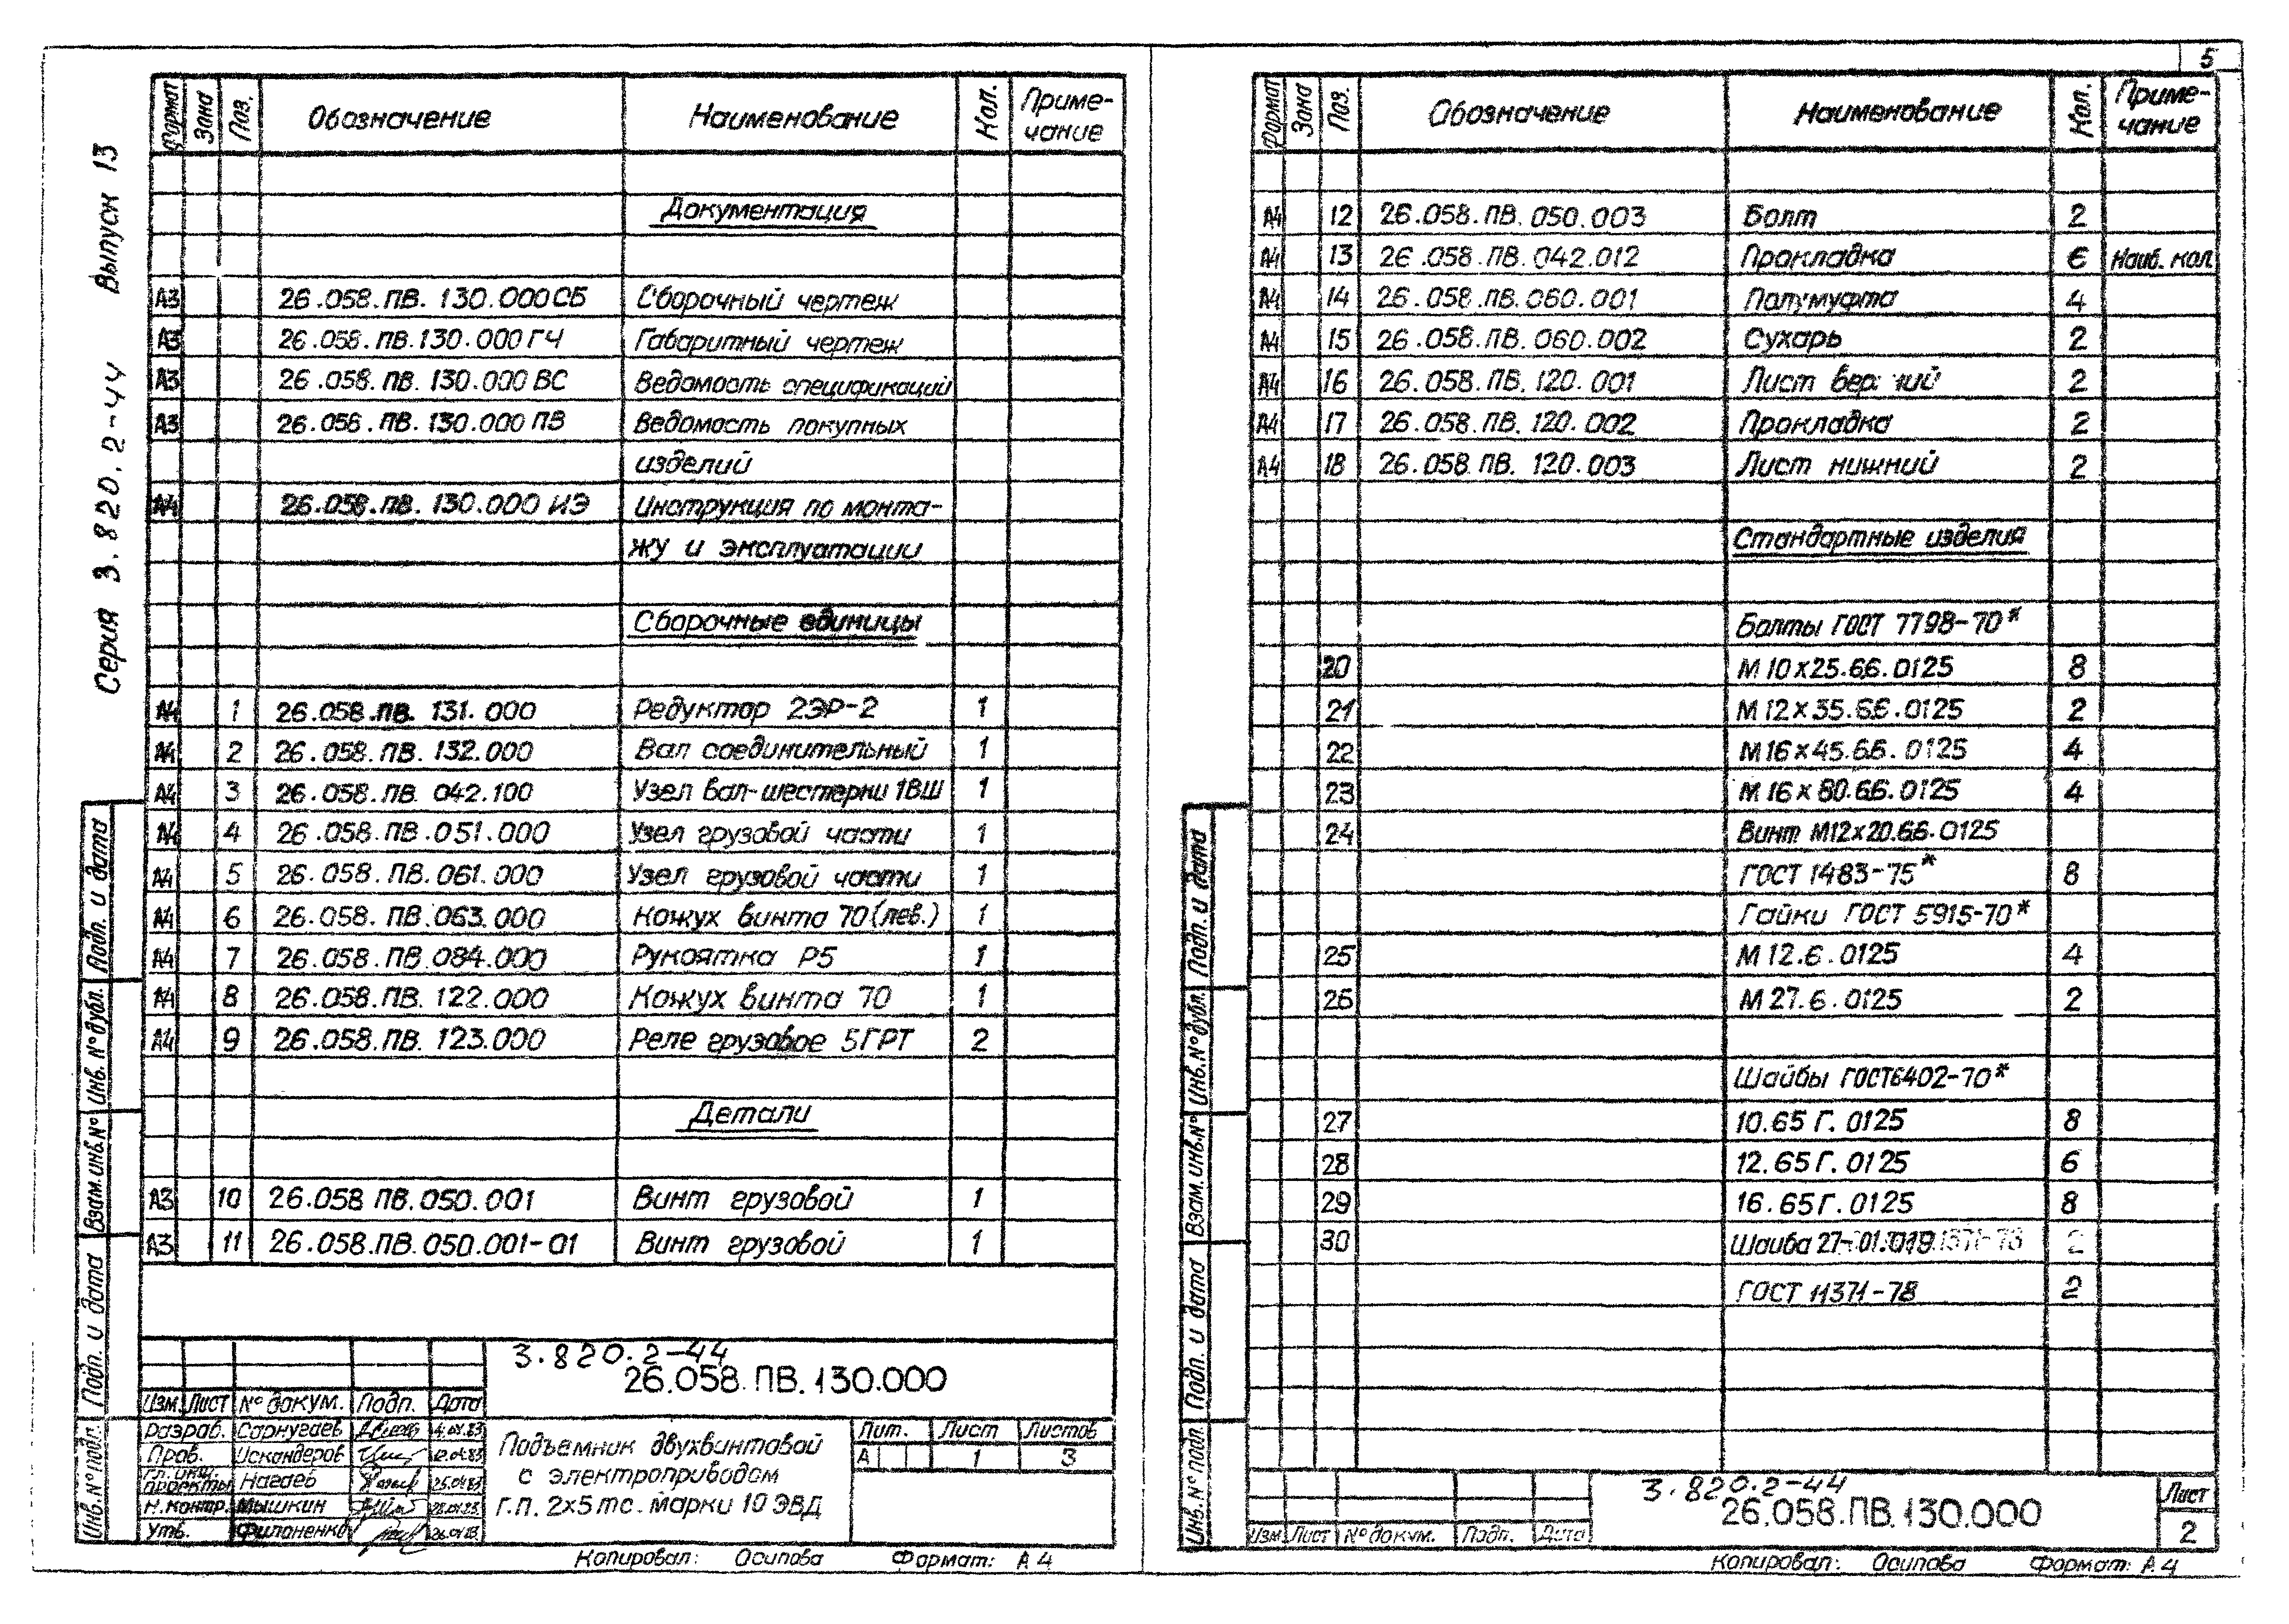 5
Серия 3.820.2-44 Выпуск 13
Формат Зона Поз. Обозначение Наименование Кол. Приме-
чание
Документация
А3 26.058.ПВ.130.000СБ Сборочный чертеж
А3 26.058.ПВ.130.000ГЧ Габаритный чертеж
А3 26.058.ПВ.130.000ВС Ведомость спецификаций
А3 26.058.ПВ.130.000ПВ Ведомость покупных
изделий
А4 26.058.ПВ.130.000ИЭ Инструкция по монта-
жу и эксплуатации
Сборочные единицы
А4 1 26.058.ПВ.131.000 Редуктор 2ЭР-2 1
А4 2 26.058.ПВ.132.000 Вал соединительный 1
А4 3 26.058.ПВ.042.100 Узел вал-шестерни 1ВШ 1
А4 4 26.058.ПВ.051.000 Узел грузовой части 1
А4 5 26.058.ПВ.061.000 Узел грузовой части 1
А4 6 26.058.ПВ.063.000 Кожух винта 70(лев.) 1
А4 7 26.058.ПВ.084.000 Рукоятка Р5 1
А4 8 26.058.ПВ.122.000 Кожух винта 70 1
А4 9 26.058.ПВ.123.000 Реле грузовое 5ГРТ 2
Детали
А3 10 26.058.ПВ.050.001 Винт грузовой 1
А3 11 26.058.ПВ.050.001-01 Винт грузовой 1
Подп. и дата
Инв.№дубл.
Взам.инв.№
Подп. и дата
Инв.№подл.
3.820.2-44
26.058.ПВ.130.000
Изм. Лист №докум. Подп. Дата
Разраб. Сарнугаев
Пров. Искандеров
Гл. инж.
проекты Нагаев 25.04.83
Н.контр. Мышкин
Утв. Филоненко
Подъемник двухвинтовой
с электроприводом
г.п. 2х5тс. марки 10ЭВД
Лит. Лист Листов
А 1 3
Копировал: Осипова Формат: А4
Формат Зона Поз. Обозначение Наименование Кол. Приме-
чание
А4 12 26.058.ПВ.050.003 Болт 2
А4 13 26.058.ПВ.042.012 Прокладка 6 Наиб. кол
А4 14 26.058.ПВ.060.001 Полумуфта 4
А4 15 26.058.ПВ.060.002 Сухарь 2
А4 16 26.058.ПВ.120.001 Лист 2
А4 17 26.058.ПВ.120.002 Прокладка 2
А4 18 26.058.ПВ.120.003 Лист нижний 2
Стандартные изделия
Болты ГОСТ 7798-70*
20 М10х25.66.0125 8
21 М12х35.66.0125 2
22 М16х45.66.0125 4
23 М16х80.66.0125 4
24 Винт М12х20.66.0125
ГОСТ 1483-75* 8
Гайки ГОСТ 5915-70*
25 М12.6.0125 4
26 М27.6.0125 2
Шайбы ГОСТ6402-70*
27 10.65Г.0125 8
28 12.65Г.0125 6
29 16.65Г.0125 8
30 Шайба 27-01.019
ГОСТ 11371-78 2
Подп. и дата
Инв.№дубл.
Взам.инв.№
Подп. и дата
Инв.№подл.
3.820.2-44
26.058.ПВ.130.000
Изм Лист №докум. Подп. Дата
Лист
2
Копировал: Осипова Формат: А4